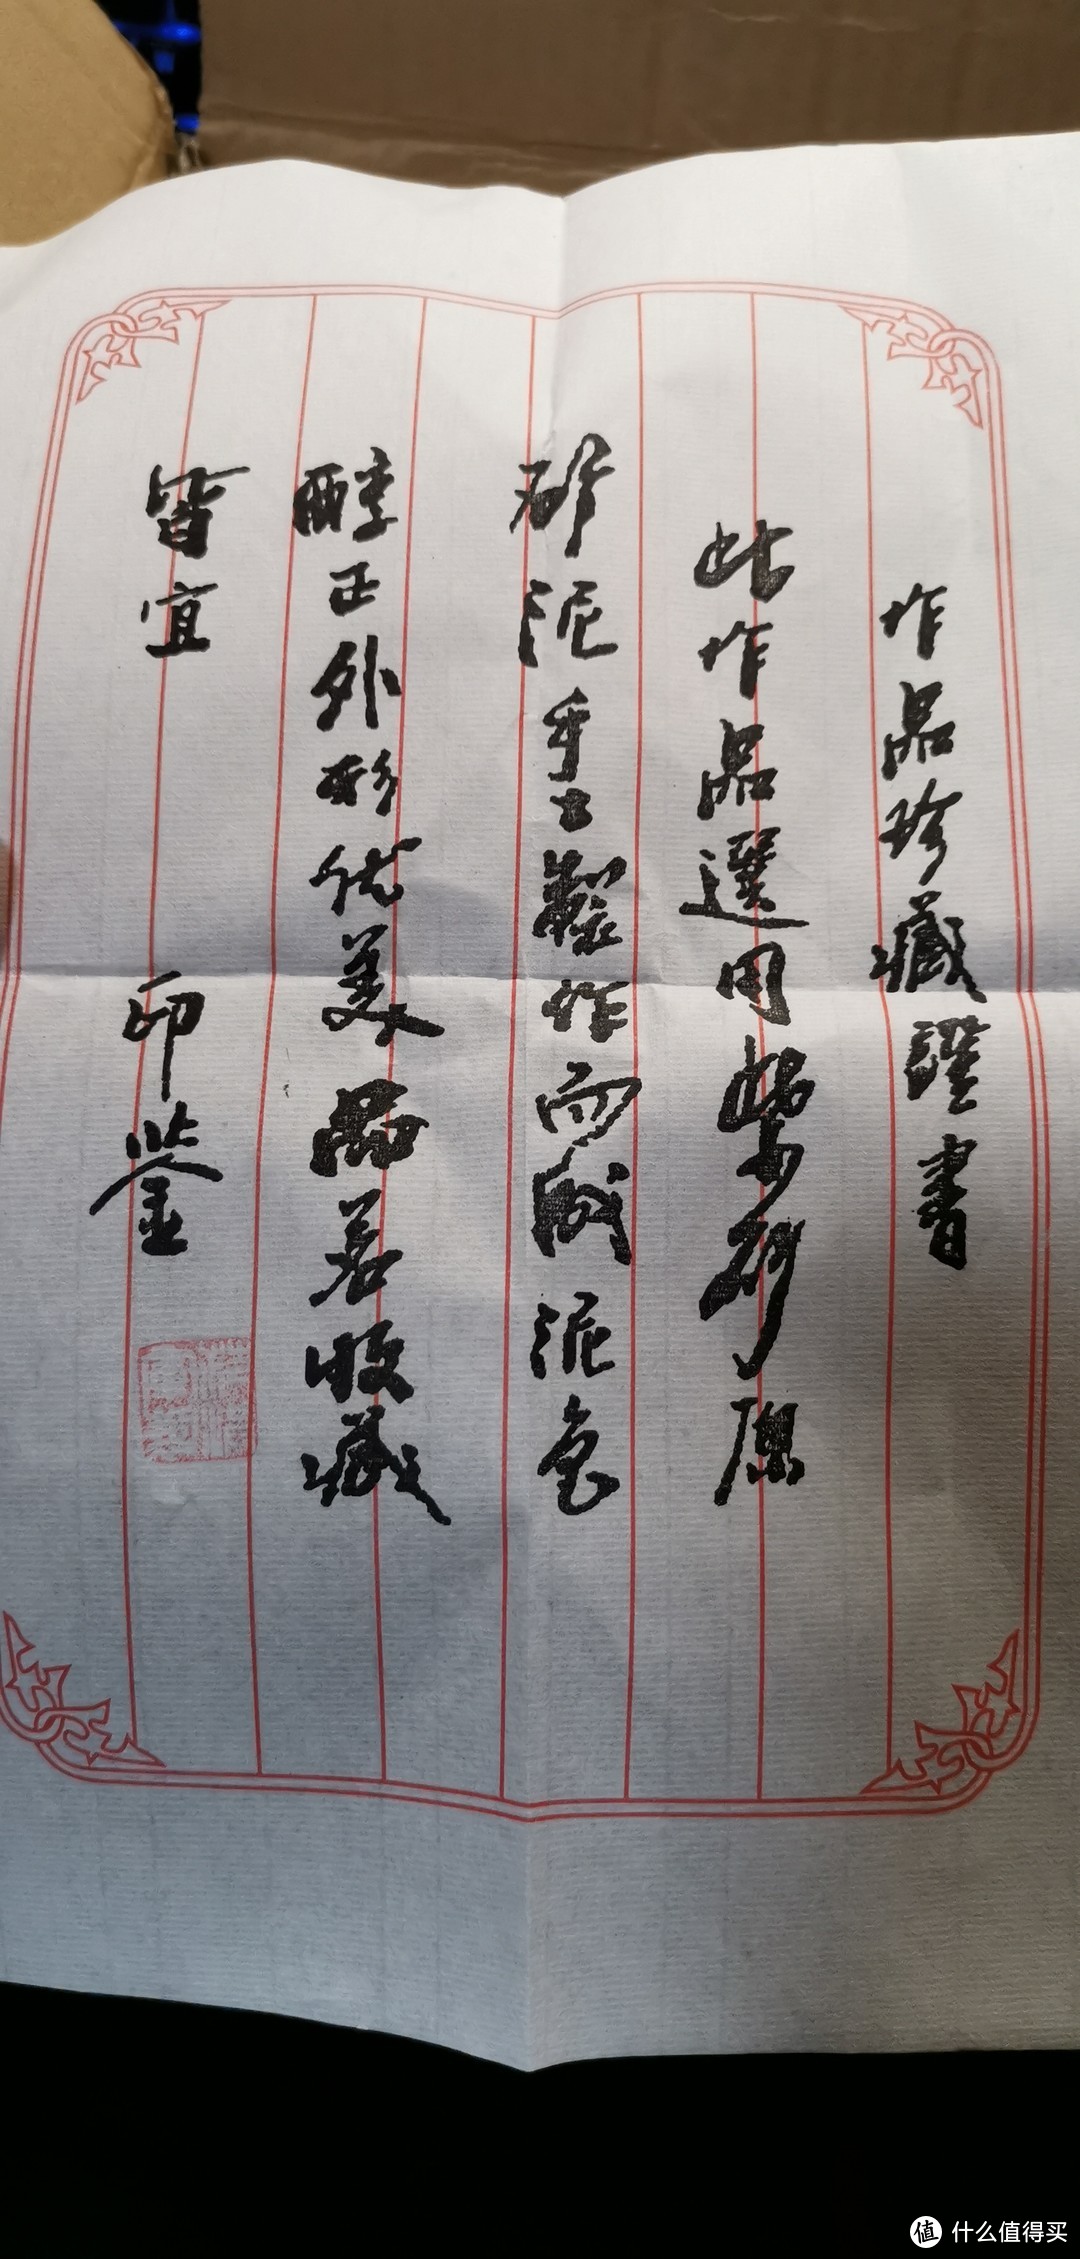 作品珍藏證書
此作品選用紫砂原
矿泥手工製作而成泥色
醇正外形优美品茗收藏
皆宜
印鉴
值 什么值得买